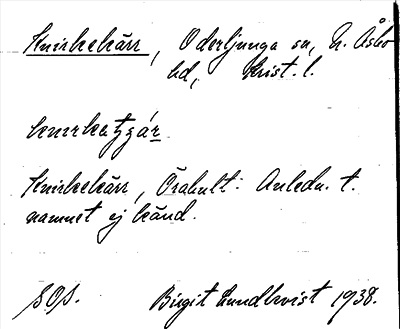 Knirkekärr, Oderljunga sn, N. Åsbo
hd, Krist. l.
Knirkekärr, Örahult: Anledn. t.
namnet ej känd.
SOS. Birgit Lundkvist 1938.